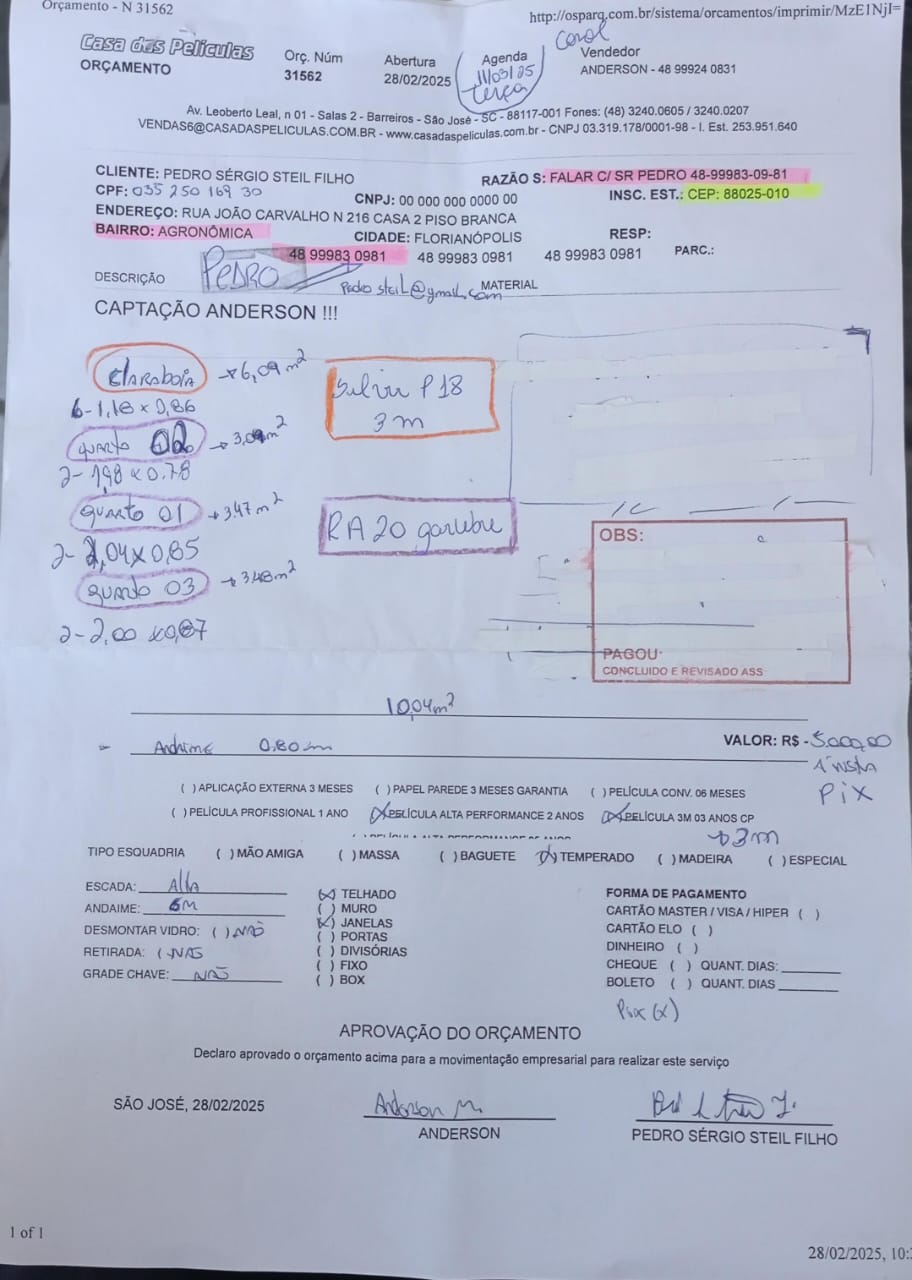 Orçamento - N 31562
http://osparq.com.br/sistema/orcamentos/imprimir/MzE1NjI=
Casa das Películas
ORÇAMENTO
Orç. Núm
31562
Abertura
28/02/2025
Agenda
11/03/25
terça
Carol
Vendedor
ANDERSON - 48 99924 0831
Av. Leoberto Leal, n 01 - Salas 2 - Barreiros - São José - SC - 88117-001 Fones: (48) 3240.0605 / 3240.0207
VENDAS6@CASADASPELICULAS.COM.BR - www.casadaspeliculas.com.br - CNPJ 03.319.178/0001-98 - I. Est. 253.951.640
CLIENTE: PEDRO SÉRGIO STEIL FILHO
RAZÃO S: FALAR C/ SR PEDRO 48-99983-09-81
CPF: 035 250 169 30
CNPJ: 00 000 000 0000 00
INSC. EST.: CEP: 88025-010
ENDEREÇO: RUA JOÃO CARVALHO N 216 CASA 2 PISO BRANCA
BAIRRO: AGRONÔMICA
CIDADE: FLORIANÓPOLIS
RESP:
48 99983 0981 48 99983 0981 48 99983 0981 PARC.:
DESCRIÇÃO
PEDRO
pedro.steil@gmail.com
MATERIAL
CAPTAÇÃO ANDERSON !!!
CLARABOIA → 6,09 m²
6 - 1,18 x 0,86
Silver P18
3m
quarto 02 → 3,09m²
2 - 1,98 x 0.78
quarto 01 → 3,47 m²
RA 20
2 - 2,04 x 0,85
quarto 03 → 3,48 m²
2 - 2,00 x 0,87
OBS:
PAGOU:
CONCLUIDO E REVISADO ASS
10,04m²
- Andaime 0.80 cm
VALOR: R$ - 5.000,00
PIX
( ) APLICAÇÃO EXTERNA 3 MESES ( ) PAPEL PAREDE 3 MESES GARANTIA ( ) PELÍCULA CONV. 06 MESES
( ) PELÍCULA PROFISSIONAL 1 ANO (X) PELÍCULA ALTA PERFORMANCE 2 ANOS (X) PELÍCULA 3M 03 ANOS CP
→ 3m
TIPO ESQUADRIA ( ) MÃO AMIGA ( ) MASSA ( ) BAGUETE (X) TEMPERADO ( ) MADEIRA ( ) ESPECIAL
ESCADA: Alta
ANDAIME: 6M
DESMONTAR VIDRO: ( ) NÃO
RETIRADA: ( ) NÃO
GRADE CHAVE: NÃO
(X) TELHADO
( ) MURO
(X) JANELAS
( ) PORTAS
( ) DIVISÓRIAS
( ) FIXO
( ) BOX
FORMA DE PAGAMENTO
CARTÃO MASTER / VISA / HIPER ( )
CARTÃO ELO ( )
DINHEIRO ( )
CHEQUE ( ) QUANT. DIAS:
BOLETO ( ) QUANT. DIAS
Pix (X)
APROVAÇÃO DO ORÇAMENTO
Declaro aprovado o orçamento acima para a movimentação empresarial para realizar este serviço
SÃO JOSÉ, 28/02/2025
Anderson M.
ANDERSON
PEDRO SÉRGIO STEIL FILHO
1 of 1
28/02/2025, 10: